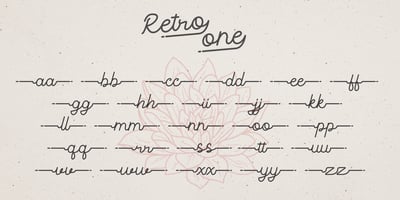 Retro
one
aa bb cc dd ee ff
gg hh ii jj kk
ll mm nn oo pp
qq rr ss tt uu
vv ww xx yy zz